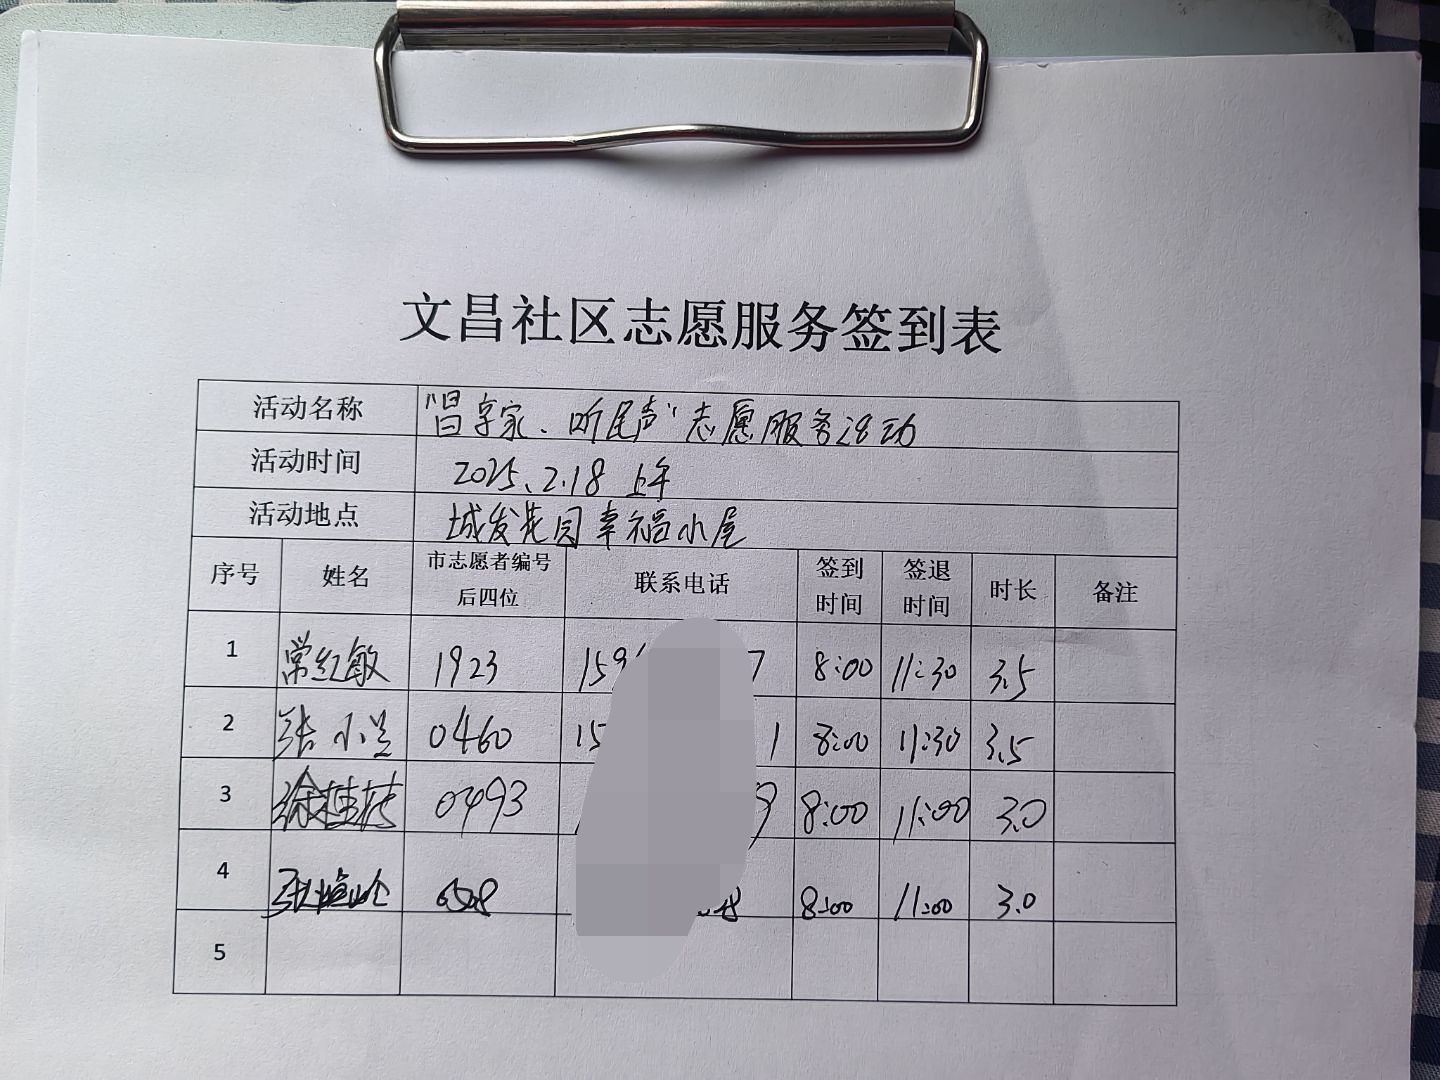 文昌社区志愿服务签到表
活动名称 "昌享家、听尾声"志愿服务活动
活动时间 2025.2.18 上午
活动地点 城发花园幸福小屋
序号 姓名 市志愿者编号后四位 联系电话 签到时间 签退时间 时长 备注
1 常红敏 1923 159 7 8:00 11:30 3.5
2 张小兰 0460 15 1 8:00 11:30 3.5
3 徐桂 0493 9 8:00 11:00 3.0
4 8:00 11:00 3.0
5